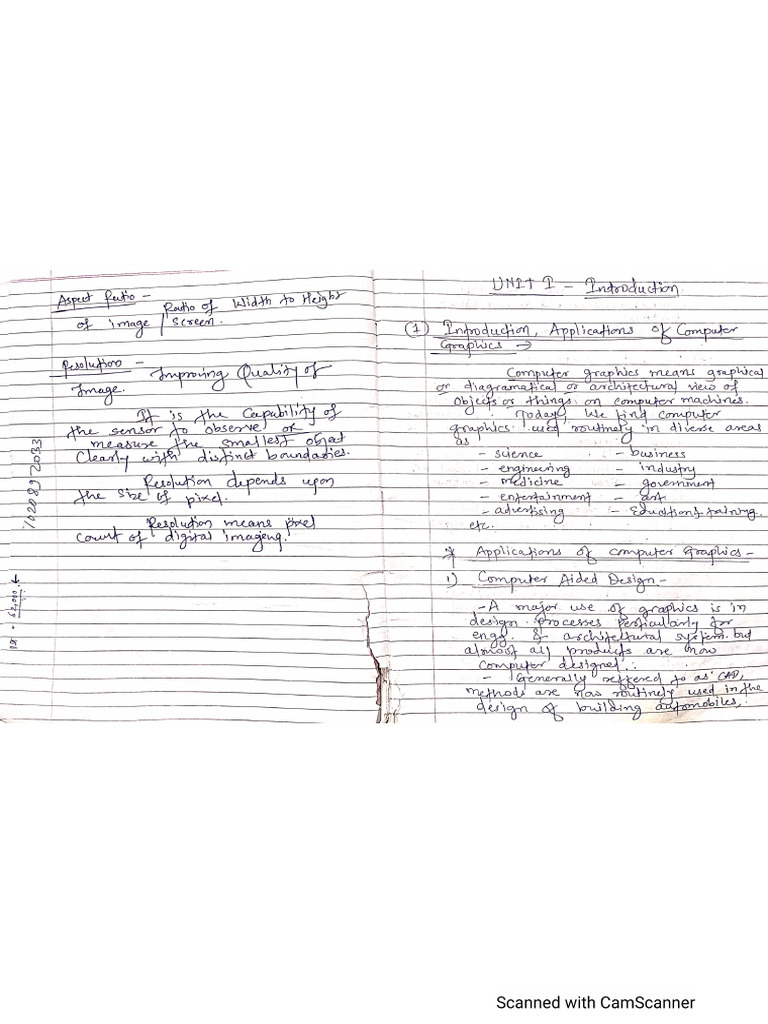 Aspect Ratio -
Ratio of Width to Height
of image / screen.
Resolution -
Improving Quality of
Image.
It is the Capability of
the sensor to observe or
measure the smallest object
Clearly with distinct boundaries.
Resolution depends upon
the size of pixel.
Resolution means pixel
count of digital imaging.
UNIT I - Introduction
(1) Introduction, Applications of Computer
Graphics →
Computer graphics means graphical
or diagramatical or architectural view of
objects or things on computer machines.
Today, we find computer
graphics used routinely in diverse areas
as
- science - business
- engineering - industry
- medicine - government
- entertainment - art
- advertising - Eductions training.
etc.
* Applications of computer Graphics -
1) Computer Aided Design -
- A major use of graphics is in
design processes perticularly for
engg. & architectural system but
almost all products are now
computer designed.
- Generally reffered to as CAD,
methods are now routinely used in the
design of building automobiles,
Scanned with CamScanner